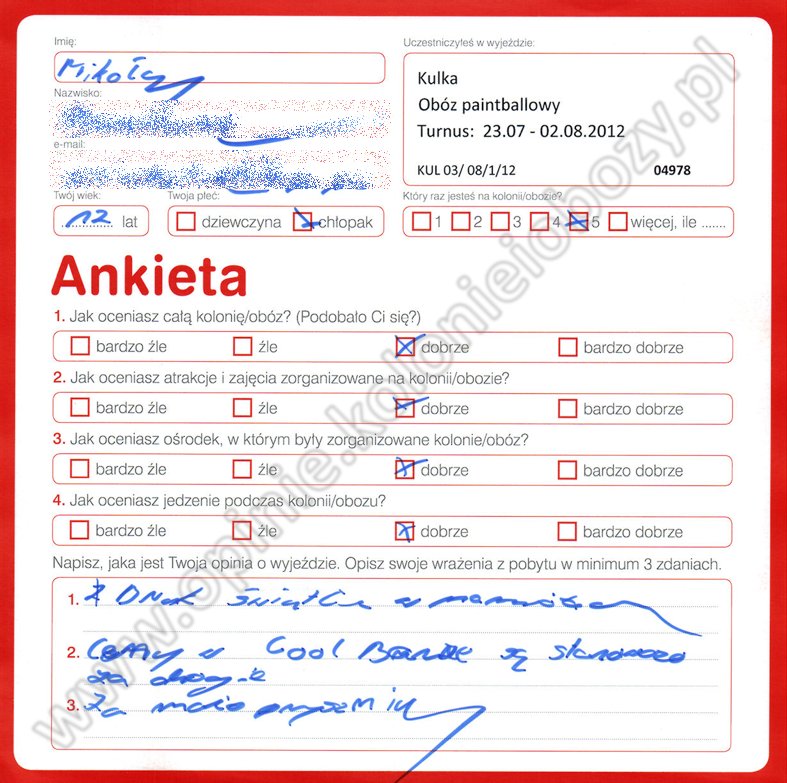 Imię:
Mikołaj
Uczestniczyłeś w wyjeździe:
Kulka
Obóz paintballowy
Turnus: 23.07 - 02.08.2012
KUL 03/ 08/1/12 04978
Nazwisko:
e-mail:
Twój wiek:
12 lat
Twoja płeć:
dziewczyna chłopak
Który raz jesteś na kolonii/obozie?
1 2 3 4 5 więcej, ile .......
Ankieta
1. Jak oceniasz całą kolonię/obóz? (Podobało Ci się?)
bardzo źle źle dobrze bardzo dobrze
2. Jak oceniasz atrakcje i zajęcia zorganizowane na kolonii/obozie?
bardzo źle źle dobrze bardzo dobrze
3. Jak oceniasz ośrodek, w którym były zorganizowane kolonie/obóz?
bardzo źle źle dobrze bardzo dobrze
4. Jak oceniasz jedzenie podczas kolonii/obozu?
bardzo źle źle dobrze bardzo dobrze
Napisz, jaka jest Twoja opinia o wyjeździe. Opisz swoje wrażenia z pobytu w minimum 3 zdaniach.
1.
2. Ceny w Cool są
za
3. Za mało
www.opinie.kolonieiobozy.pl